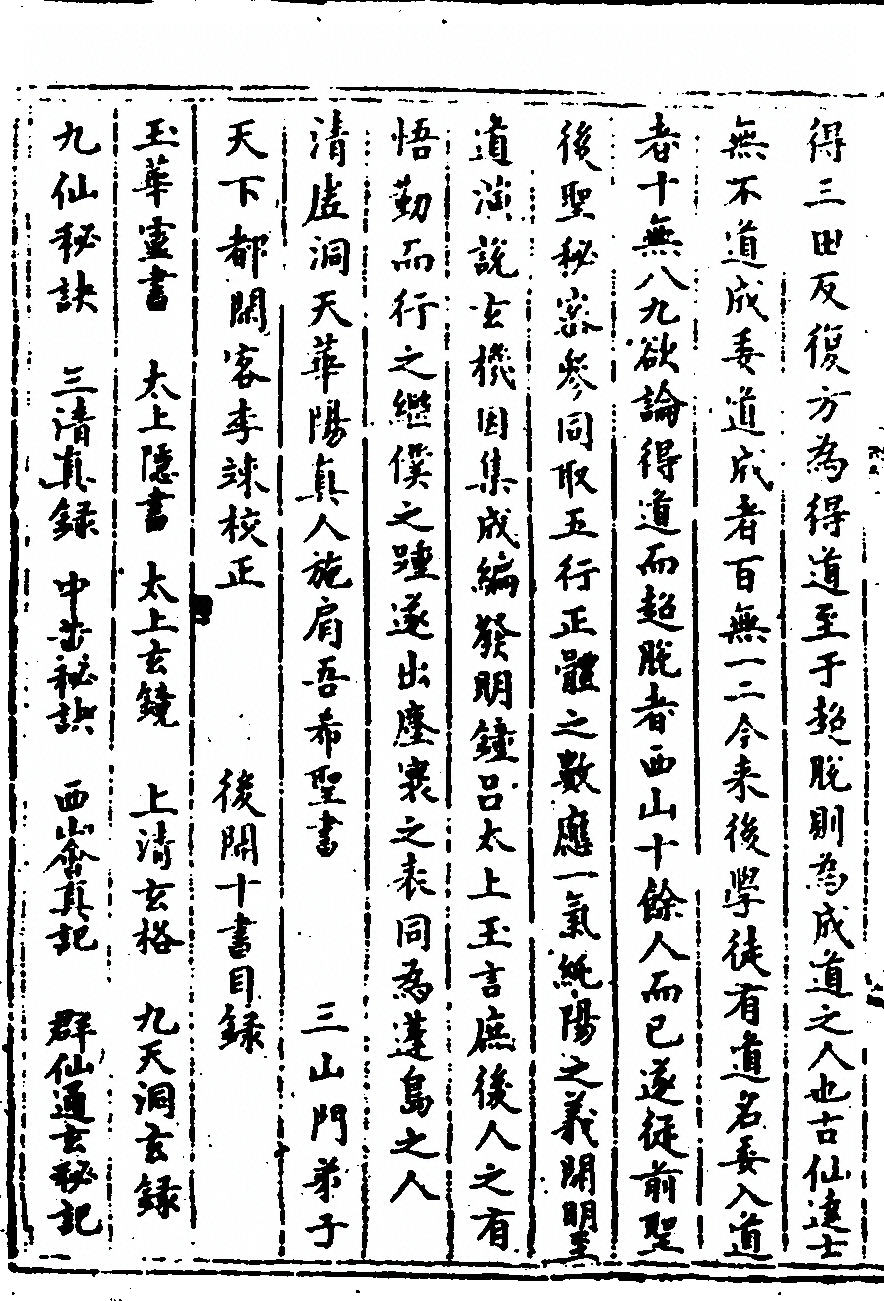 得三田反復方為得道至于超脫則為成道之人也古仙達士
無不道成委道成者百無一二今来後學徒有道名委入道
者十無八九欲論得道而超脫者西山十餘人而已遂從前聖
後聖秘密參同取五行正體之數應一氣純陽之義開明至
道演說玄機因集成編發明鐘呂太上玉言庶後人之有
悟勤而行之繼僕之踵遂出塵寰之表同為蓬島之人
清虛洞天華陽真人施肩吾希聖書 三山門弟子
天下都閑客李竦校正 後開十書目錄
玉華靈書 太上隱書 太上玄鏡 上清玄格 九天洞玄錄
九仙秘訣 三清真録 中黃秘訣 西山會真記 群仙通玄秘記